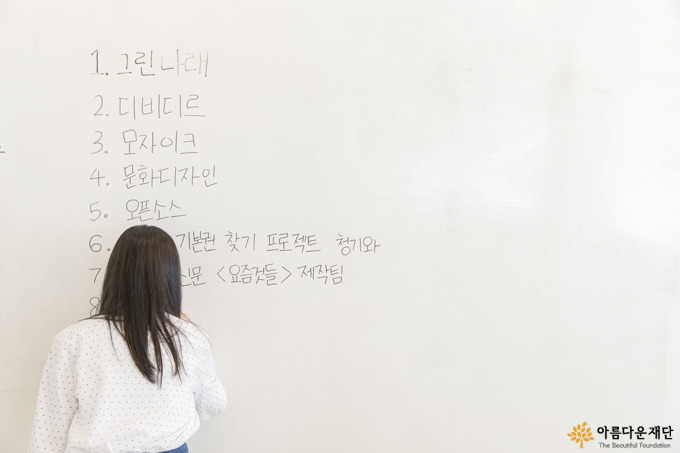 1. 그린나래
2. 디비디르
3. 모자이크
4. 문화디자인
5. 오픈소스
6. 기본권 찾기 프로젝트 청기와
7 신문 <요즘것들> 제작팀
8
아름다운재단
The Beautiful Foundation